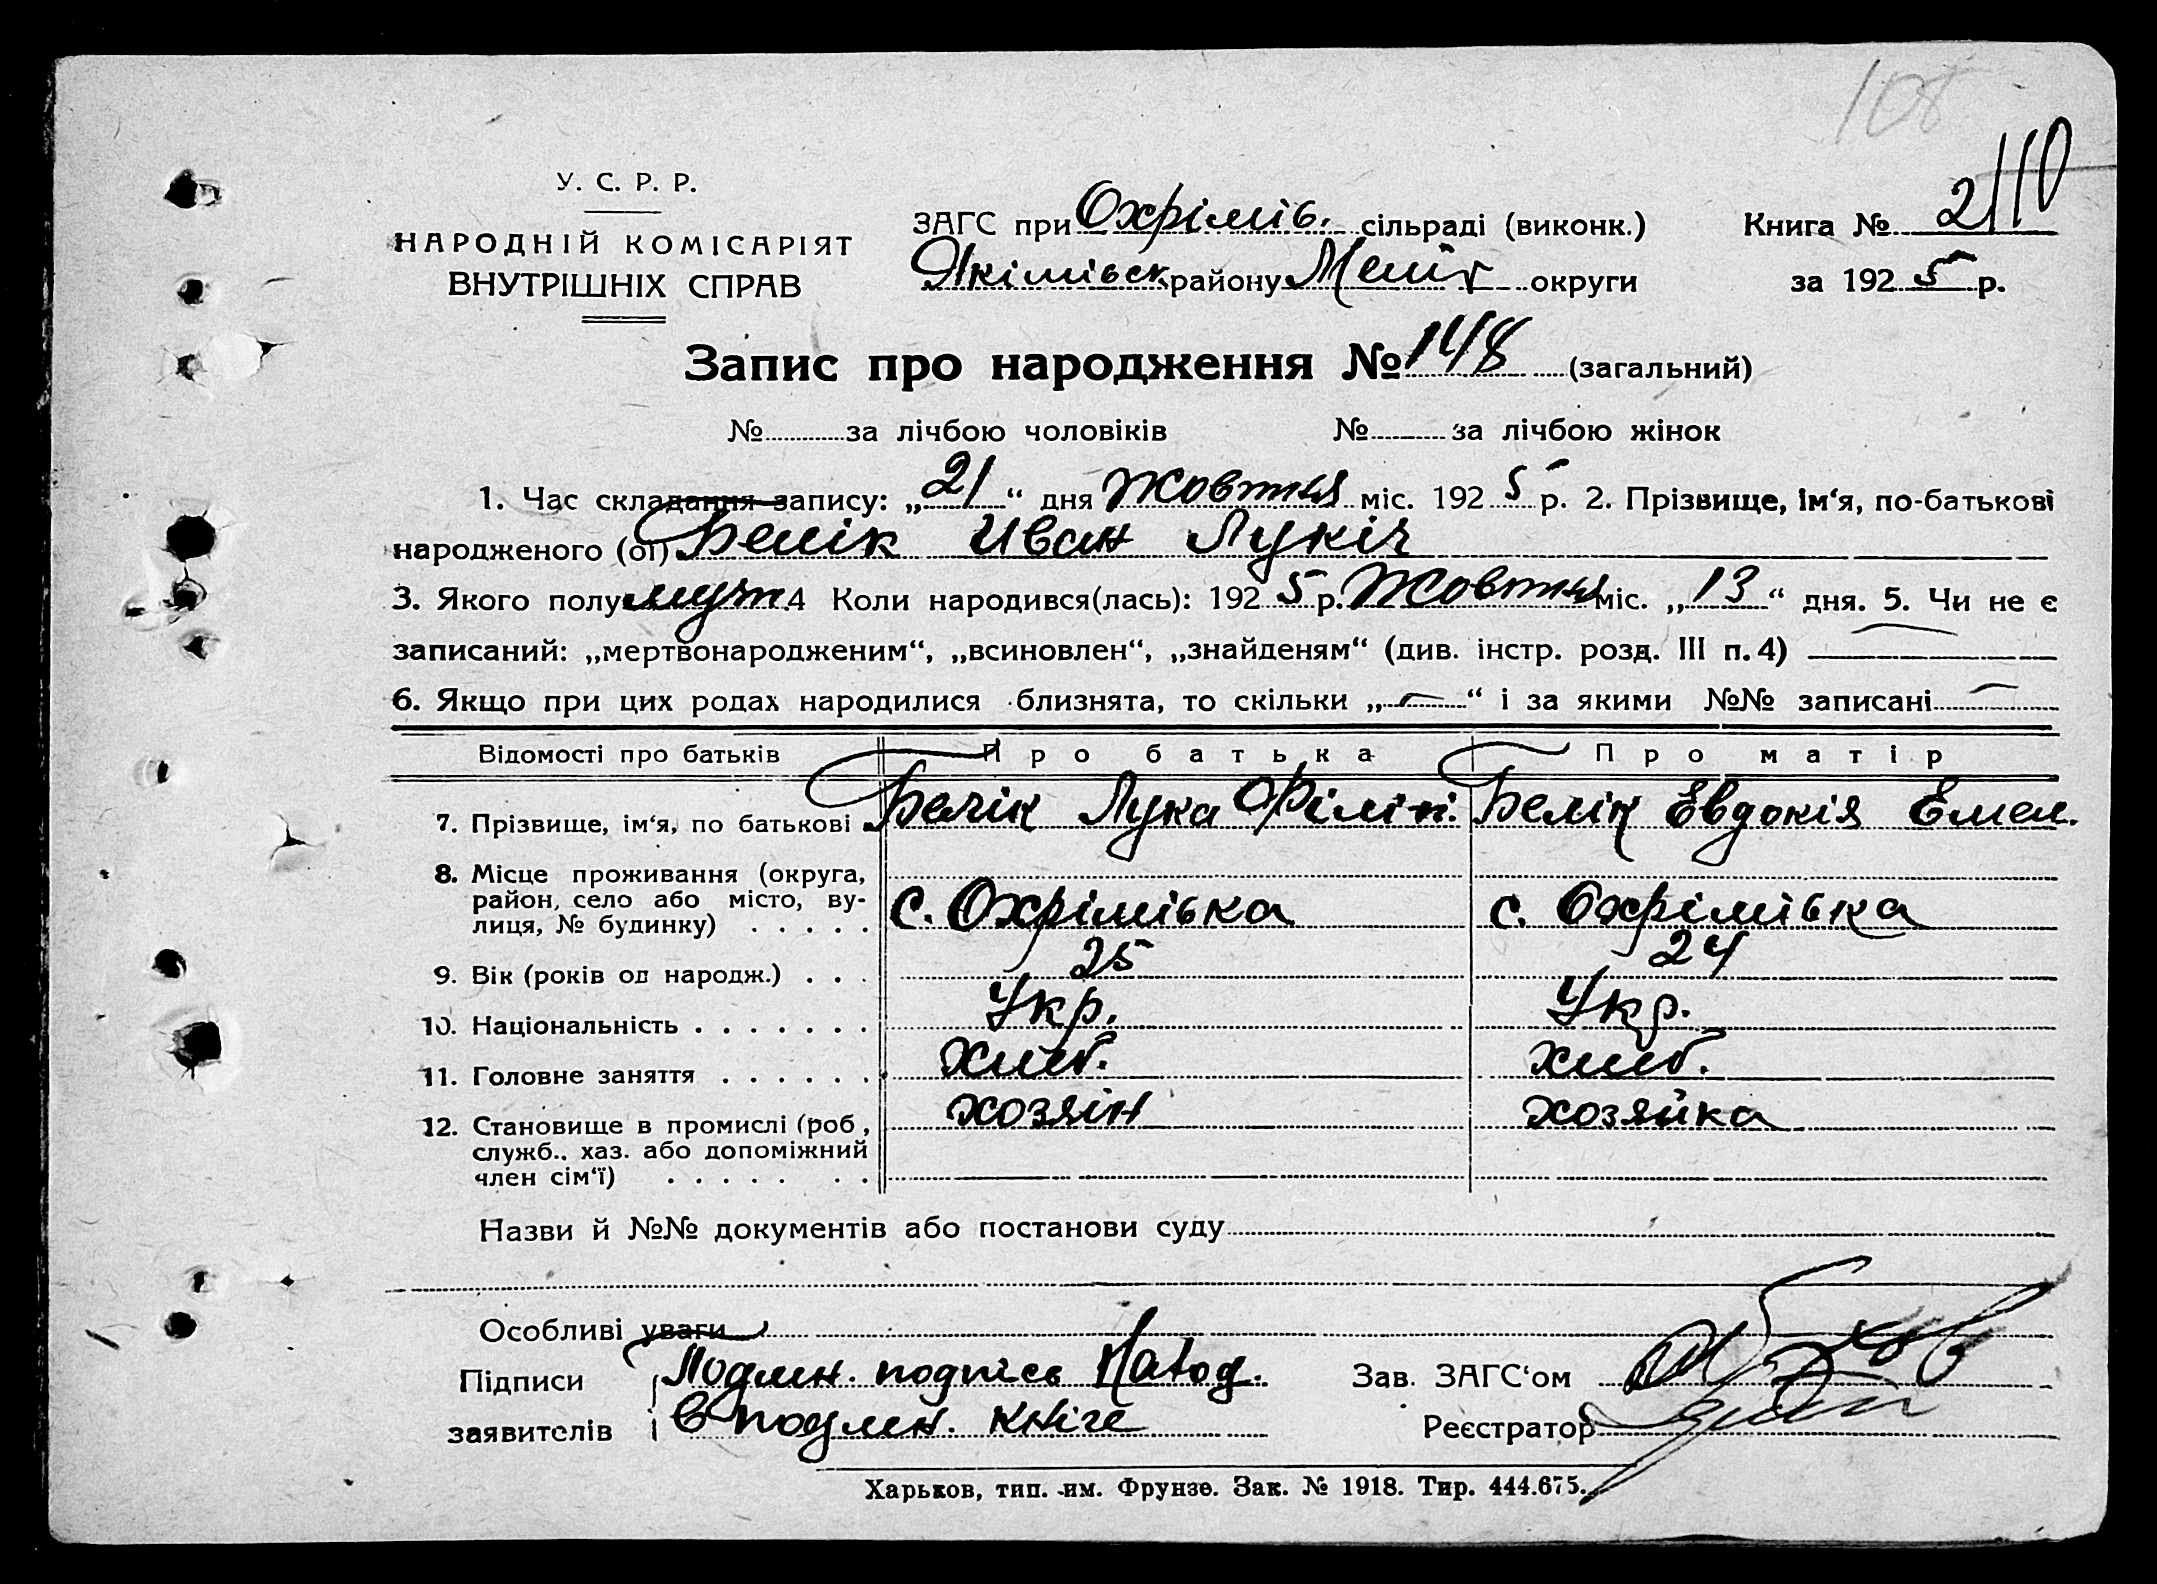 108
У. С. Р. Р.
НАРОДНІЙ КОМІСАРІЯТ
ВНУТРІШНІХ СПРАВ
ЗАГС при Охрімів. сільраді (виконк.)
Якімівск району Меліт округи
Книга № 2/110
за 1925 р.
Запис про народження № 148 (загальний)
№ за лічбою чоловіків № за лічбою жінок
1. Час складання запису: „21“ дня Жовтня міс. 1925 р. 2. Прізвище, ім‘я, по-батькові
народженого (ої) Белік Иван Лукіч
3. Якого полу муж. 4 Коли народився(лась): 1925 р. Жовтня міс. „13“ дня. 5. Чи не є
записаний: „мертвонародженим“, „всиновлен“, „знайденям“ (див. інстр. розд. III п. 4) —
6. Якщо при цих родах народилися близнята, то скільки „—“ і за якими №№ записані —
Відомості про батьків Про батька Про матір
7. Прізвище, ім‘я, по батькові Белік Лука Філіп. Белік Евдокія Емел.
8. Місце проживання (округа,
район, село або місто, ву-
лиця, № будинку) . . . . . с. Охрімівка с. Охрімівка
9. Вік (років од народж.) . . . 25 24
10. Національність . . . . . . . Укр. Укр.
11. Головне заняття . . . . . . хліб. хліб.
12. Становище в промислі (роб., хозяін хозяйка
служб., хаз. або допоміжний
член сім‘ї) . . . . . . .
Назви й №№ документів або постанови суду
Особливі уваги
Підписи Подлин. подпісь Наход.
заявителів в подлин. кніге
Зав. ЗАГС‘ом
Реєстратор
Харьков, тип. им. Фрунзе. Зак. № 1918. Тир. 444.675.